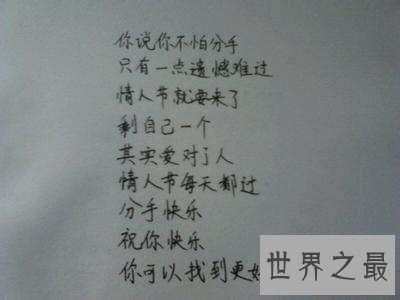 你说你不怕分手
只有一点遗憾难过
情人节就要来了
剩自己一个
其实爱对了人
情人节每天都过
分手快乐
祝你快乐
你可以找到更
世界之最